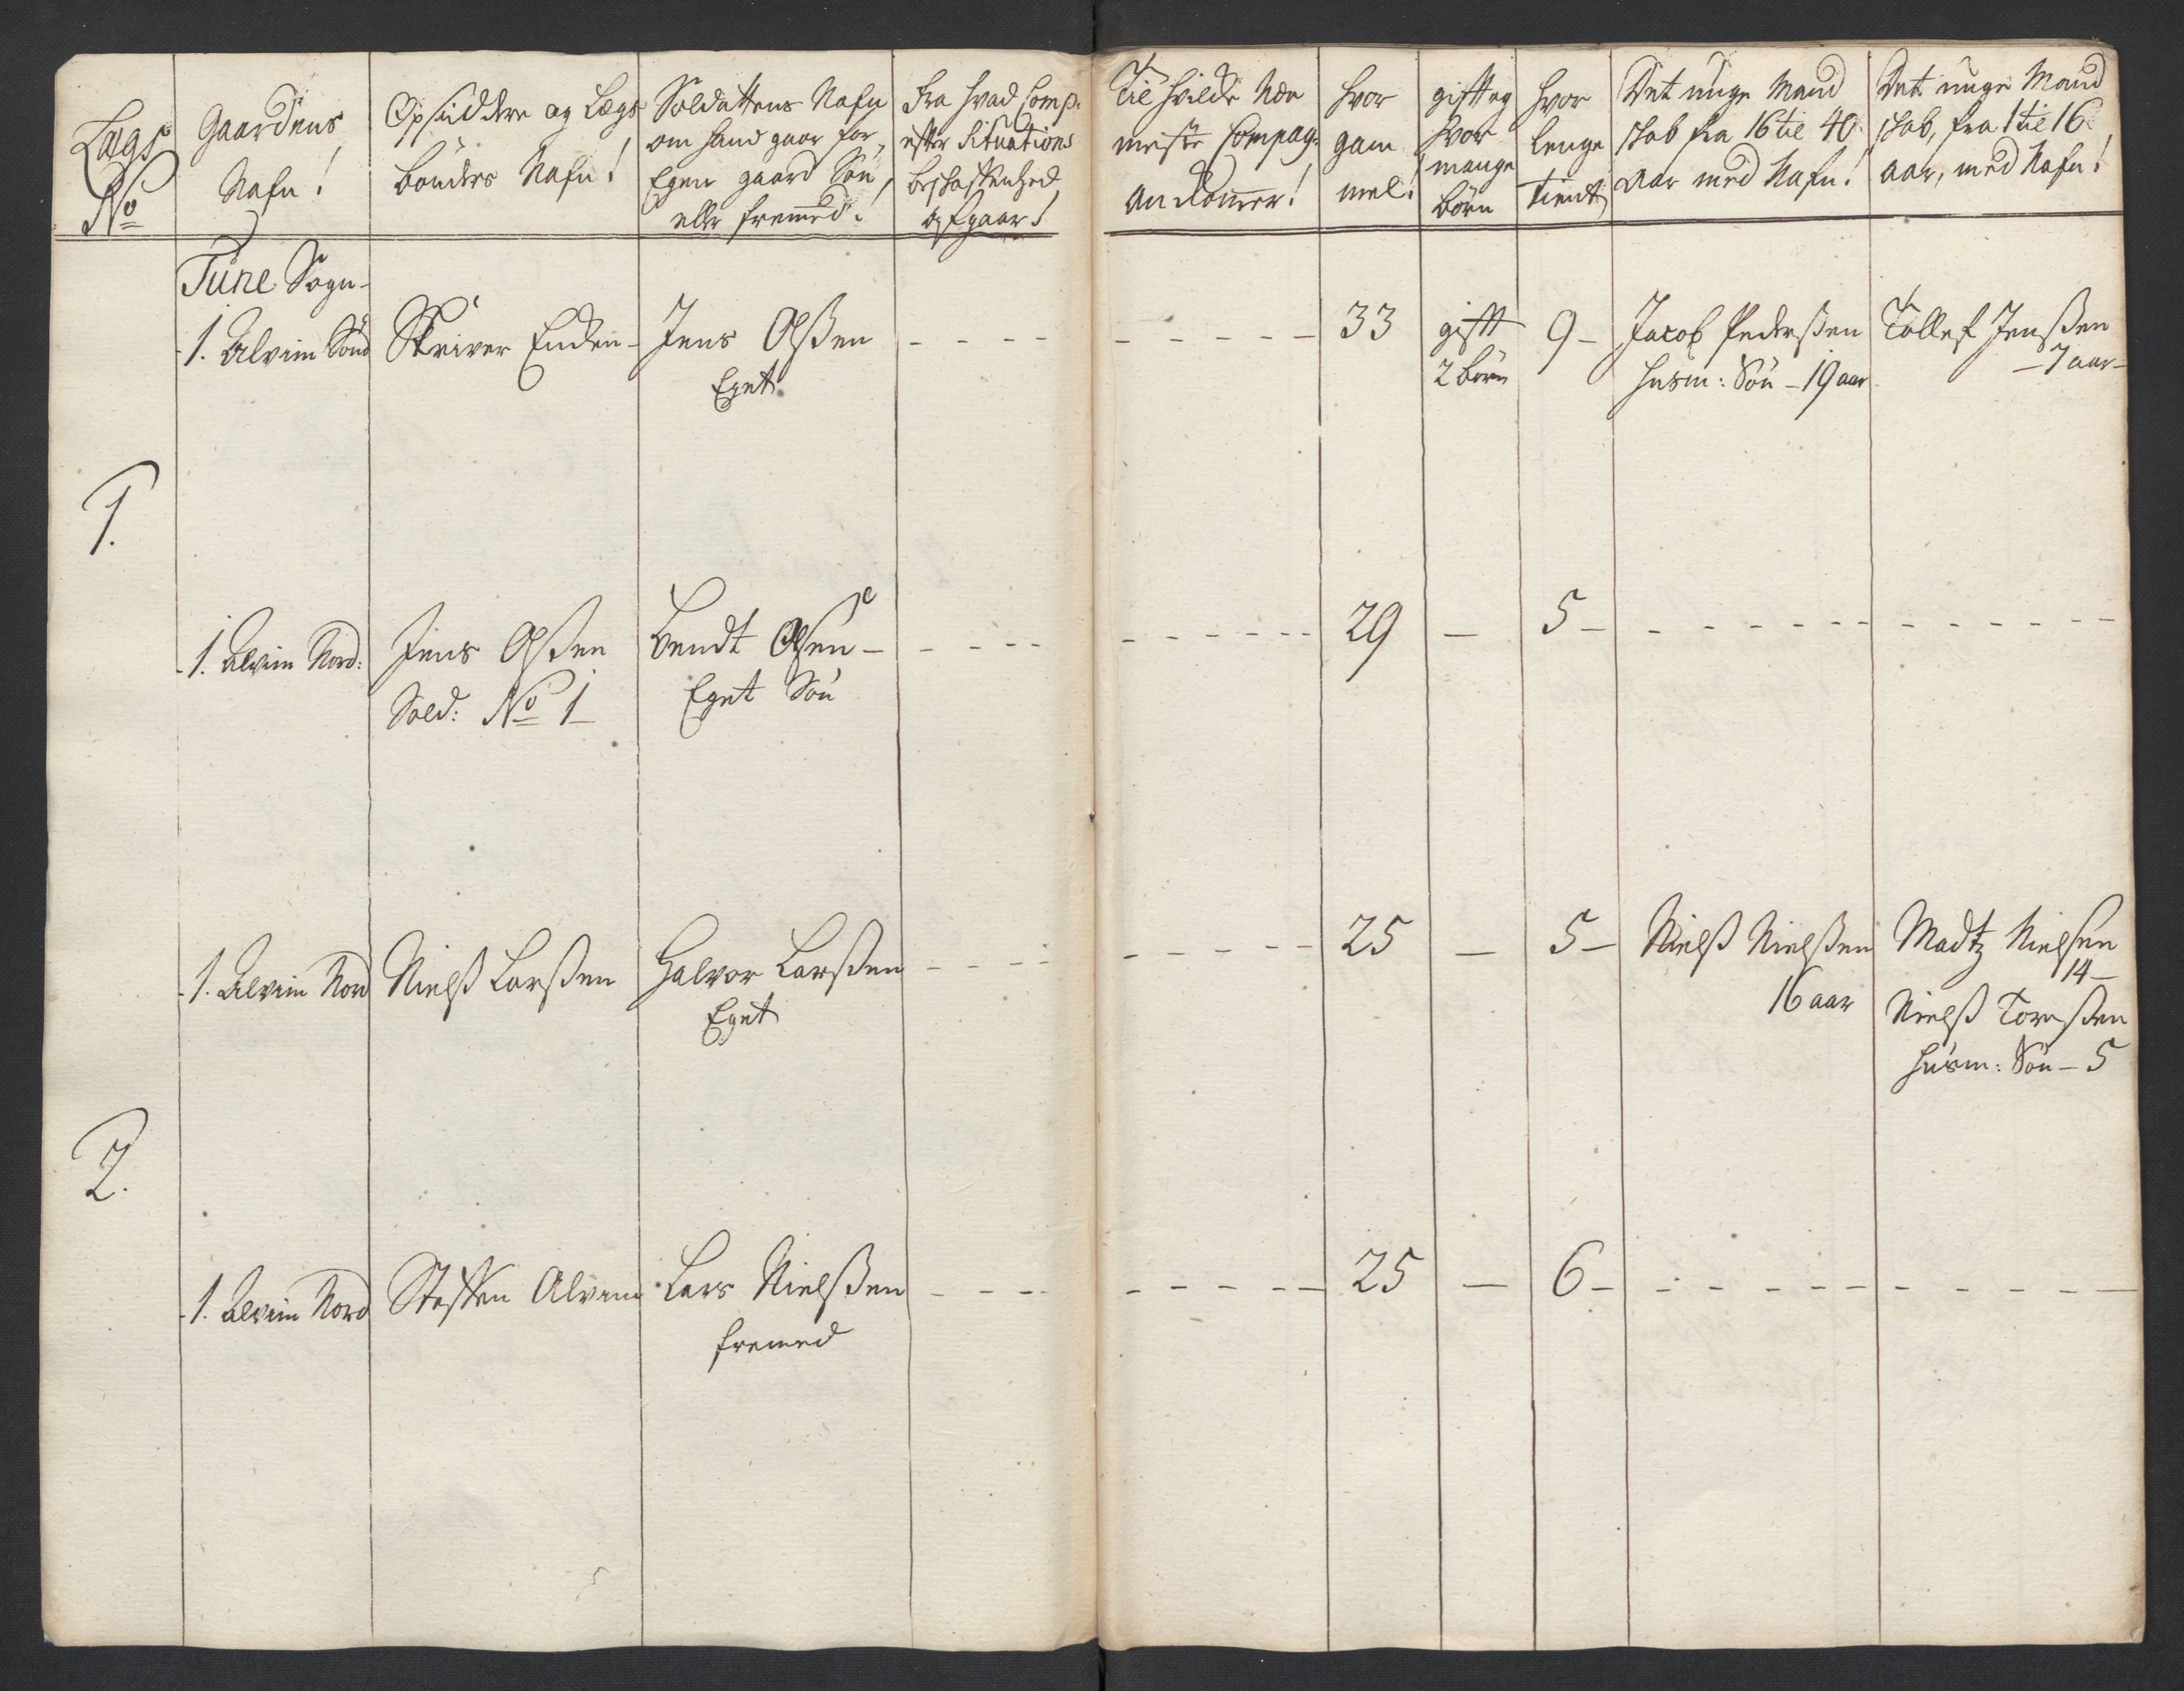 Lægs
No
Gaardens
Nafn!
Opsiddere og Lægs
bønders Nafn!
Soldattens Nafn
om hand gaar for
Egen gaard Søn
eller fremmed!
Fra hvad Comp:
efter Situations
beschaffenhed
afgaar!
Til hvilcke Nær
meste Compag:
an kommer!
hvor
gam
mel!
gifft og
hvor
mange
börn
hvor
lenge
tient
Det unge Mand
skab fra 16 til 40
aar med Nafn!
Det unge Mand
skab, fra 1 til 16
aar, med Nafn!
Tune Sogn
1. Alvim Sönd
Skriver Enden
Jens Olßen
Eget
33
gifft
2 börn
9
Jacob Pederßen
Husm: Sön 19 aar
Tollef Jenßen
7 aar
1.
1. Alvim Nord:
Jens Olßen
Sold: No 1
Bendt Olsen
Eget Sön
29
5
1. Alvim Nord
Nielß Larßen
Halvor Larßen
Eget
25
5
Nielß Nielßen
16 aar
Madtz Nielsen
14
Nielß Toreßen
Husm: Sön 5
2.
1. Alvim Nord
Steffen Alvim
Lars Nielßen
fremed
25
6